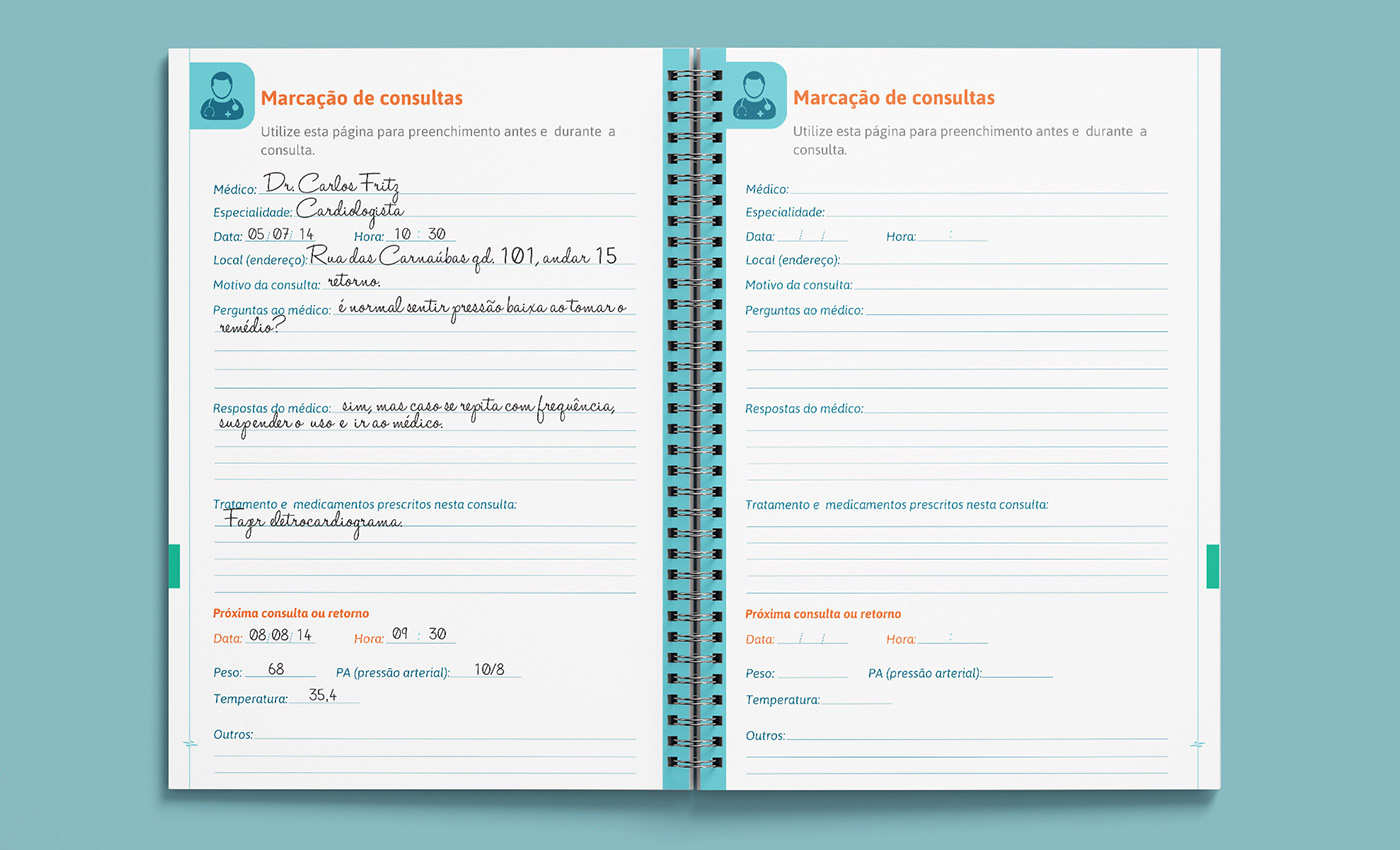 Marcação de consultas
Utilize esta página para preenchimento antes e durante a
consulta.
Médico: Dr. Carlos Fritz
Especialidade: Cardiologista
Data: 05/07/14 Hora: 10 : 30
Local (endereço): Rua das Carnaúbas qd. 101, andar 15
Motivo da consulta: retorno.
Perguntas ao médico: é normal sentir pressão baixa ao tomar o
remédio?
Respostas do médico: sim, mas caso se repita com frequência,
suspender o uso e ir ao médico.
Tratamento e medicamentos prescritos nesta consulta:
Fazer eletrocardiograma.
Próxima consulta ou retorno
Data: 08/08/14 Hora: 09 : 30
Peso: 68 PA (pressão arterial): 10/8
Temperatura: 35,4
Outros:
Marcação de consultas
Utilize esta página para preenchimento antes e durante a
consulta.
Médico:
Especialidade:
Data: / / Hora: :
Local (endereço):
Motivo da consulta:
Perguntas ao médico:
Respostas do médico:
Tratamento e medicamentos prescritos nesta consulta:
Próxima consulta ou retorno
Data: / / Hora: :
Peso: PA (pressão arterial):
Temperatura:
Outros: